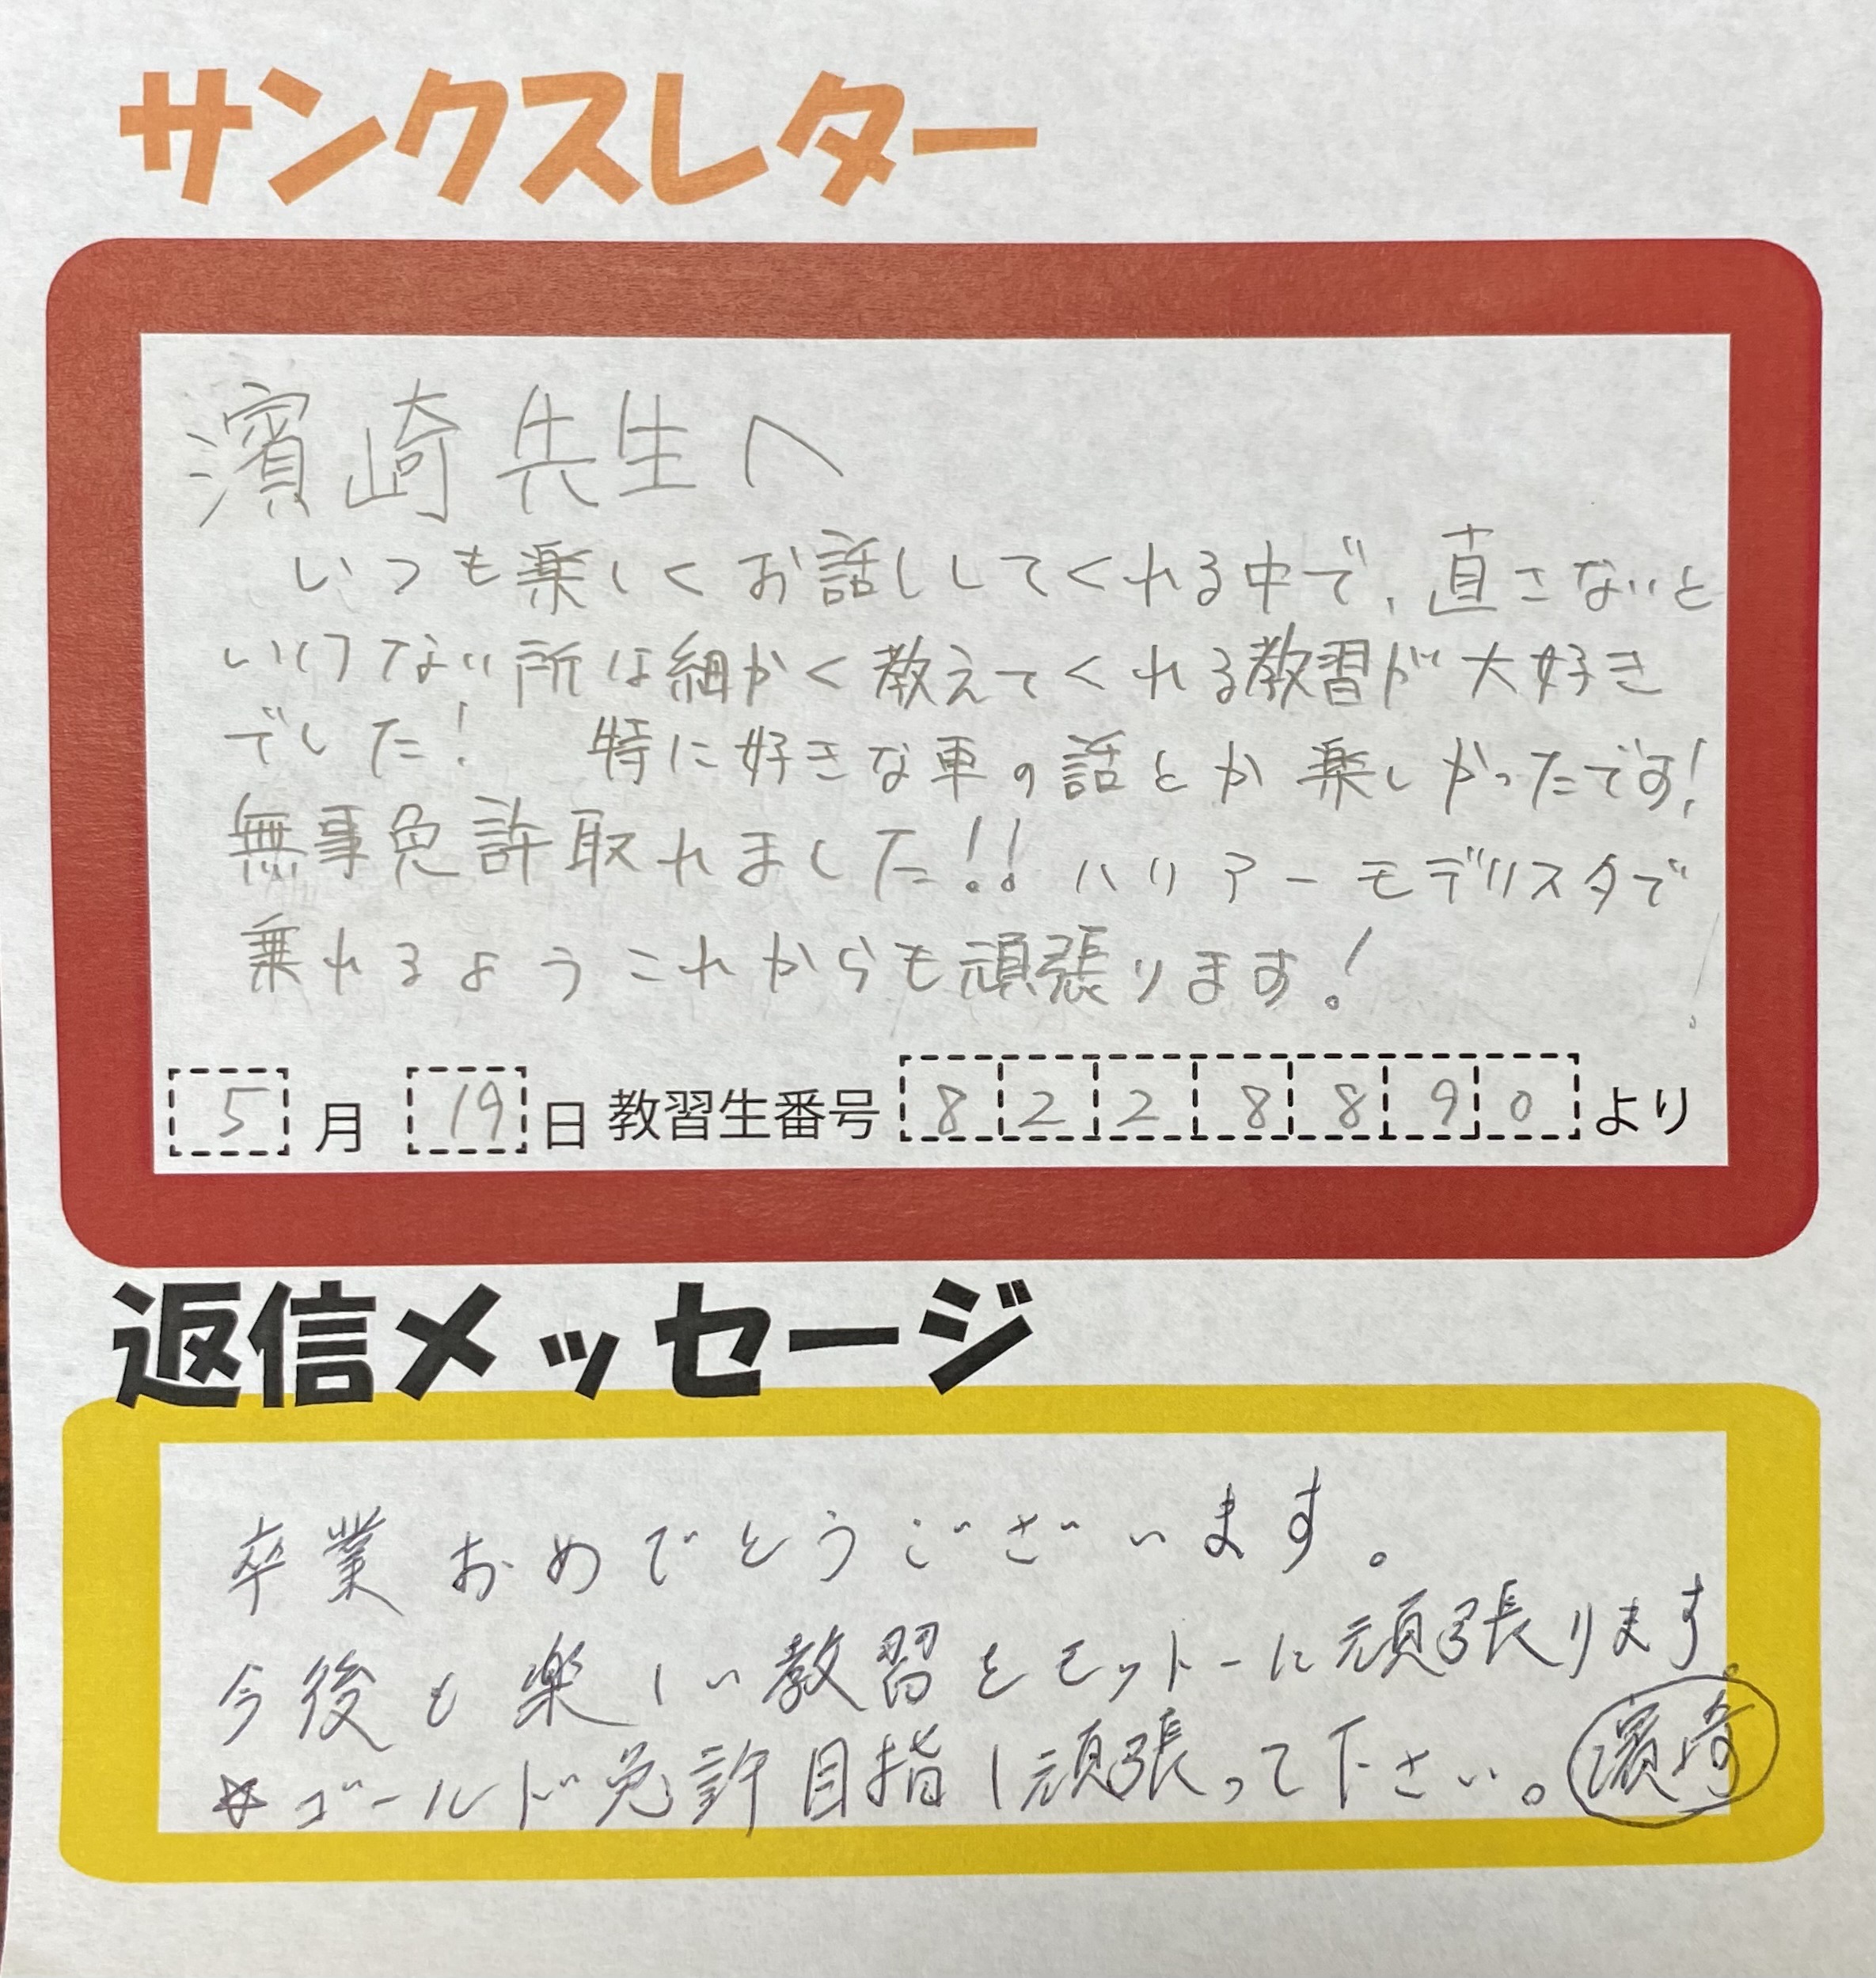 サンクスレター
濱崎先生へ
いつも楽しくお話ししてくれる中で、直さないと
いけない所は細かく教えてくれる教習が大好き
でした! 特に好きな車の話とか楽しかったです!
無事免許取れました!! ハリアーモデリスタで
乗れるようこれからも頑張ります!
5月 19日 教習生番号 8228890 より
返信メッセージ
卒業おめでとうございます。
今後も楽しい教習をモットーに頑張ります。
☆ゴールド免許目指し頑張って下さい。濱崎